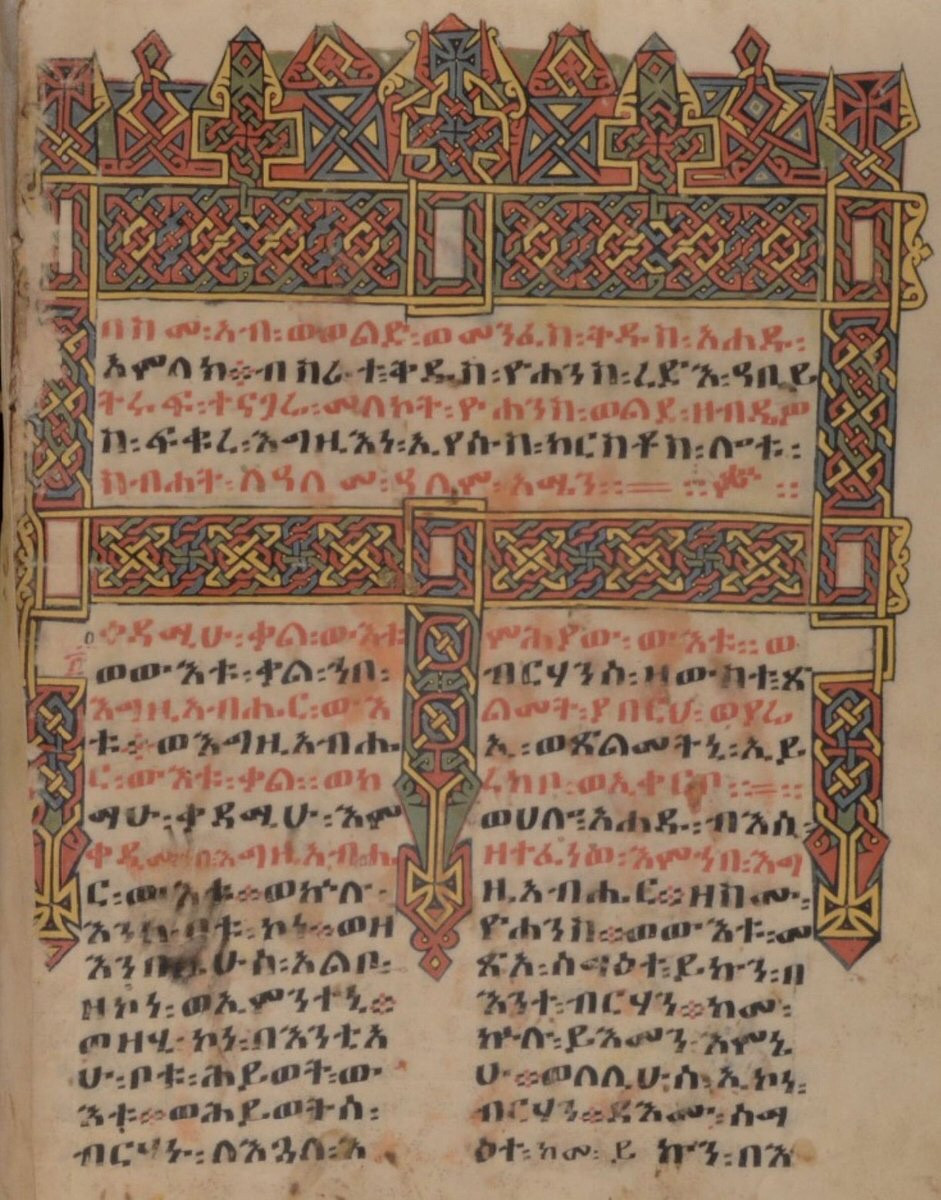 በስመ፡አብ፡ወወልድ፡ወመንፈስ፡ቅዱስ፡አሐዱ፡
አምላክ፨ብስራተ፡ቅዱስ፡ዮሐንስ፡ረድእ፡ዓቢይ
ትሩፍ፡ተናጋሬ፡መለኮት፡ዮሐንስ፡ወልደ፡ዘብዴዎ
ስ፡ፍቁረ፡እግዚእነ፡ኢየሱስ፡ክርስቶስ፡ሎቱ፡
ስብሐት፡ለዓለመ፡ዓለም፡አሜን፡፡
ቀዳሚሁ፡ቃል፡ውእቱ፡
ወውእቱ፡ቃል፡ኀበ፡
እግዚአብሔር፡ውእ
ቱ፨ወእግዚአብሔ
ር፡ውእቱ፡ቃል፡፡ወከ
ማሁ፡ቀዳሚሁ፡እም
ቀዲሙ፡በእግዚአብሔ
ር፡ውእቱ፨ወኵሉ፡
እንተ፡ቦቱ፡ኮነ፨ወዘ
እንበሌሁሰ፡አልቦ፡
ዘኮነ፡ወኢምንተኒ፨
ወዘሂ፡ኮነ፡በእንቲአ
ሁ፡ቦቱ፡ሕይወት፡ው
እቱ፨ወሕይወትሰ፡
ብርሃኑ፡ለእጓለ፡እ
ምሕያው፡ውእቱ፡፡ወ
ብርሃንሰ፡ዘውስተ፡ጽ
ልመት፡ያበርህ፡ወያሬ
ኢ፡ወጽልመትኒ፡ኢይ
ረክቦ፡ወኢቀርቦ፡፡
ወሀሎ፡አሐዱ፡ብእሲ፡
ዘተፈነወ፡እምኀበ፡እግ
ዚአብሔር፨ዘስሙ፡
ዮሐንስ፨ወውእቱ፡መ
ጽአ፡ስምዕተ፡ይኩን፡በ
እንተ፡ብርሃን፨ከመ፡
ኵሉ፡ይእመን፡እምኒ
ሁ፨ወለሊሁሰ፡ኢኮነ፡
ብርሃን፨ዳእሙ፡ስም
ዕተ፡ከመ፡ይኩን፡በእ